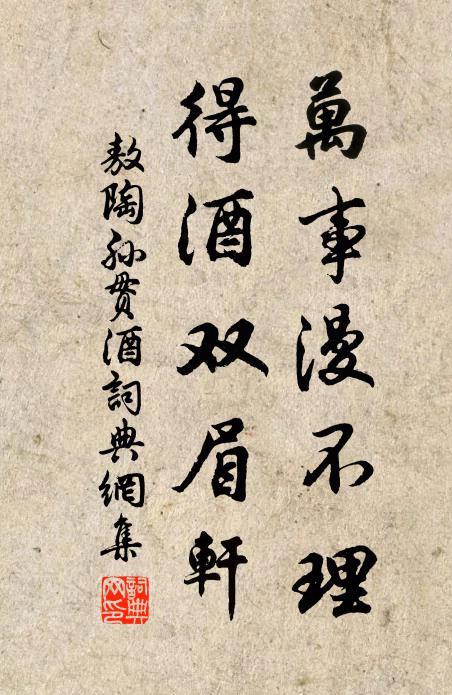 萬事漫不理
得酒双眉軒
敖陶孙贳酒詞典網集
詞典网印